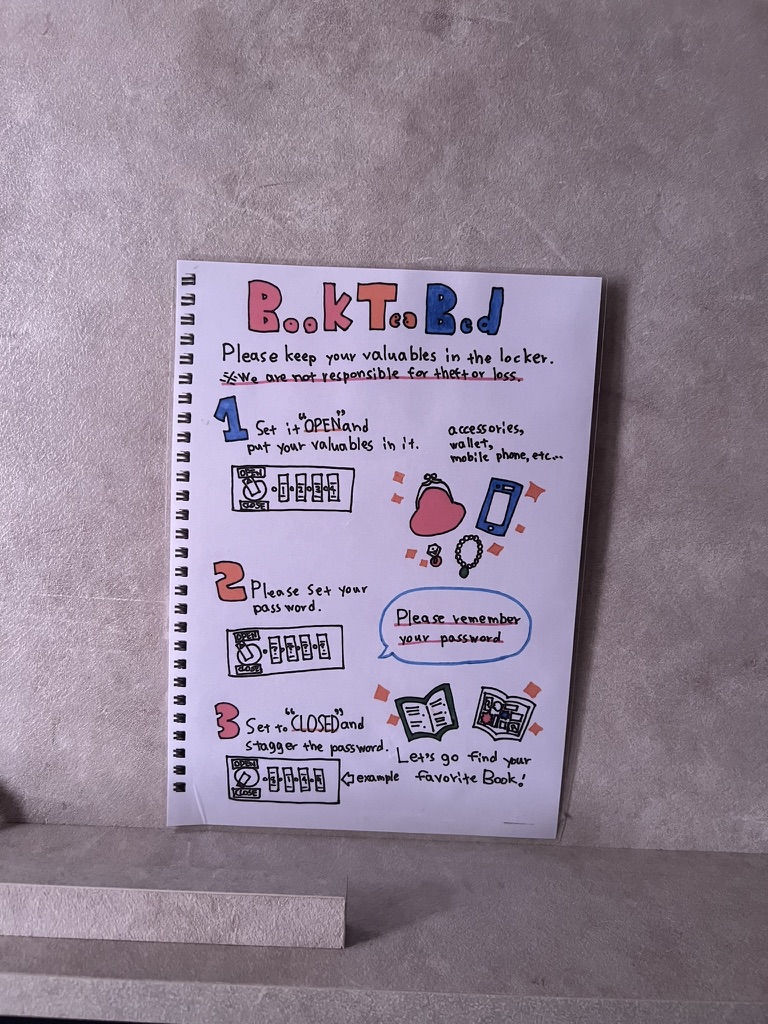 Book Tea Bed
Please keep your valuables in the locker.
※We are not responsible for theft or loss.
1 Set it "OPEN" and
put your valuables in it.
accessories,
wallet,
mobile phone, etc...
OPEN
1 2 3 4
CLOSE
2 Please set your
password.
OPEN
? ? ? ?
CLOSE
Please remember
your password
3 Set to "CLOSED" and
stagger the password.
OPEN
CLOSE
⇦example
Let's go find your
favorite Book!